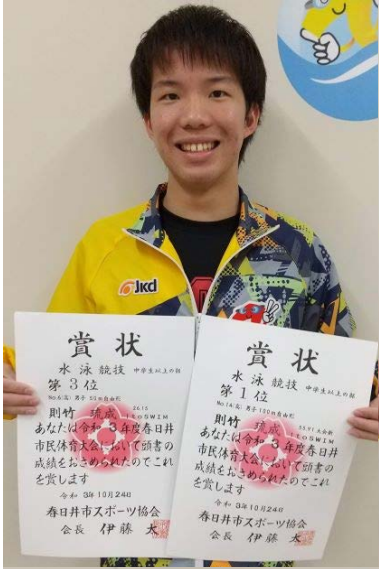 Jkd
賞状
水泳競技 中学生以上の部
第3位
No.6(高)男子 50m自由形
則竹 琉成
26.15
あなたは令和3年度春日井
市民体育大会において頭書の
成績をおさめられたのでこれ
を賞します
令和 3年10月24日
春日井市スポーツ協会
会長 伊藤 太
賞状
水泳競技 中学生以上の部
第1位
男子 100m自由形
則竹 琉成
あなたは令和3年度春日井
市民体育大会において頭書の
成績をおさめられたのでこれ
を賞します
令和 3年10月24日
春日井市スポーツ協会
会長 伊藤 太